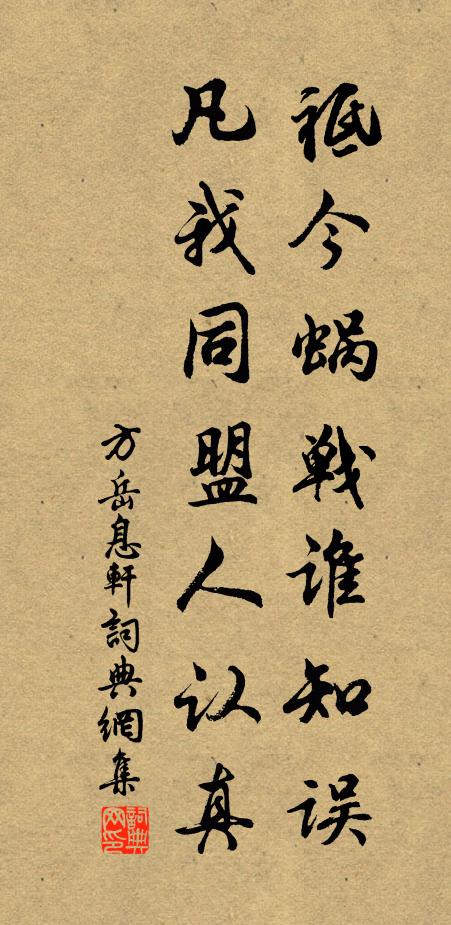 祗今蜗战谁知误
凡我同盟人认真
方岳息軒詞典網集
詞典网印